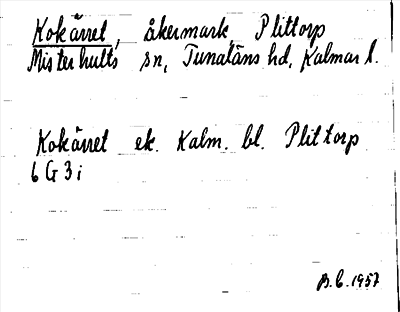 Kokärret, åkermark, Plittorp
Misterhults sn, Tunaläns hd, Kalmar l.
Kokärret ek. Kalm. bl. Plittorp
6 G 3 i
B.C. 1957